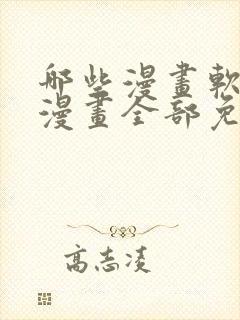 哪些漫畫軟
漫畫全部免
高志凌